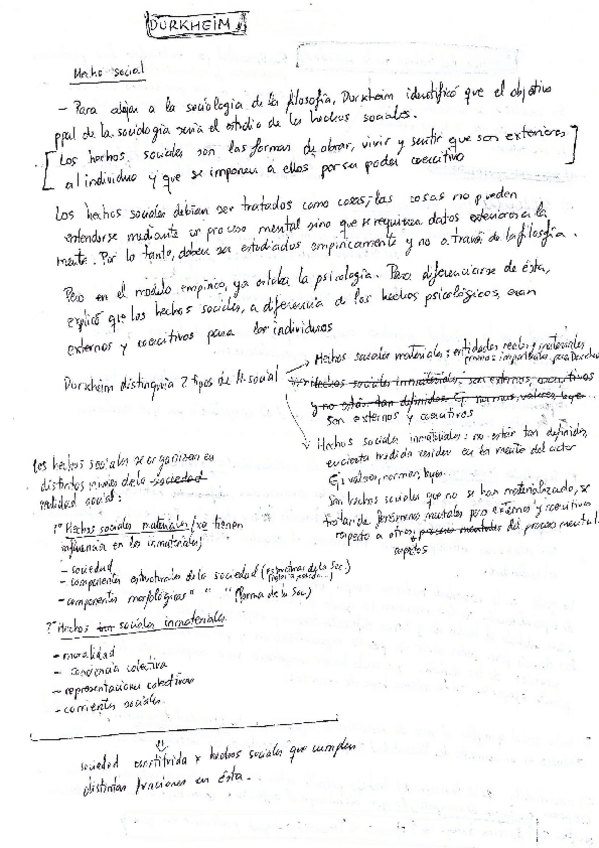 DURKHEIM
Hecho social
- Para alejar a la sociología de la filosofía, Durkheim identificó que el objetivo
ppal de la sociología sería el estudio de los hechos sociales.
[Los hechos sociales son las formas de obrar, vivir y sentir que son exteriores
al individuo y que se imponen a ellos por su poder coercitivo]
Los hechos sociales debían ser tratados como cosas; las cosas no pueden
entenderse mediante un proceso mental sino que se requieren datos exteriores a la
mente. Por lo tanto, deben ser estudiados empíricamente y no a través de la filosofía.
Pero en el modelo empírico, ya estaba la psicología. Para diferenciarse de ésta,
explicó que los hechos sociales, a diferencia de los hechos psicológicos, eran
externos y coercitivos para los individuos
Durkheim distinguía 2 tipos de H. social
Hechos sociales materiales: entidades reales y materiales
pero no importantes para Durkheim
Hechos sociales inmateriales, son externos, coercitivos
y no están tan definidos. Ej. normas, valores, leyes...
son externos y coercitivos
Hechos sociales inmateriales: no están tan definidos,
en cierta medida residen en la mente del actor
Ej: valores, normas, leyes...
Son hechos sociales que no se han materializado, se
trataría de fenómenos mentales pero externos y coercitivos
respecto a otros procesos mentales del proceso mental.
aspectos
Los hechos sociales se organizan en
distintos niveles de la sociedad
realidad social:
1º Hechos sociales materiales (no tienen
influencia en los inmateriales)
- sociedad
- componentes estructurales de la sociedad (Estructuras de la Soc.)
- componentes morfológicos " " " (Forma de la Soc)
2º Hechos sociales inmateriales
- moralidad
- conciencia colectiva
- representaciones colectivas
- corrientes sociales
⇓
sociedad constituida x hechos sociales que cumplen
distintas funciones en ésta.